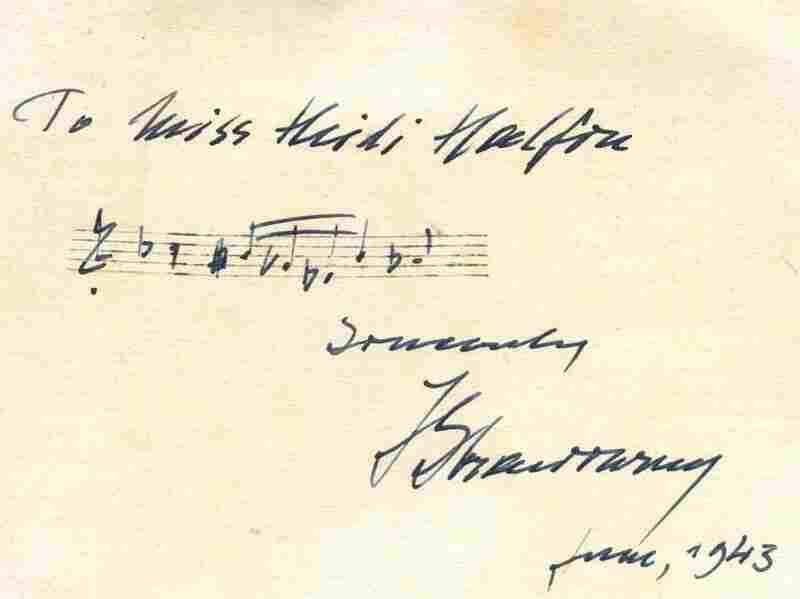 To Miss Heidi Halfon
Sincerely
IStrawinsky
June, 1943